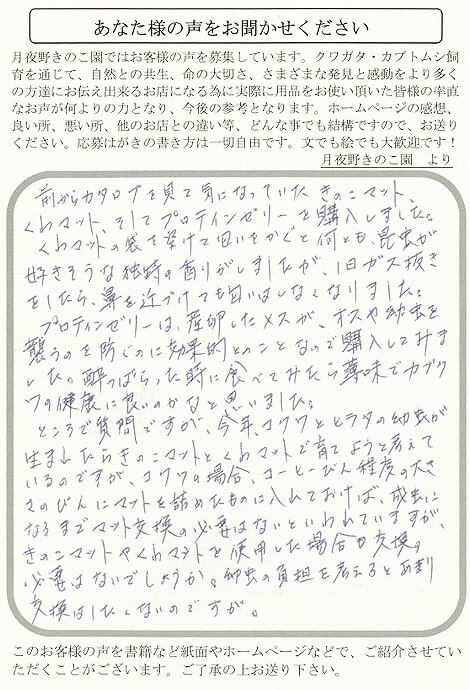 あなた様の声をお聞かせください
月夜野きのこ園ではお客様の声を募集しています。クワガタ・カブトムシ飼
育を通じて、自然との共生、命の大切さ、さまざまな発見と感動をより多く
の方達にお伝え出来るお店になる為に実際に用品をお使い頂いた皆様の率直
なお声が何よりの力となり、今後の参考となります。ホームページの感想、
良い所、悪い所、他のお店との違い等、どんな事でも結構ですので、お送り
ください。応募はがきの書き方は一切自由です。文でも絵でも大歓迎です！
月夜野きのこ園　より
前からカタログを見て気になっていたきのこマット、
くわマット、そしてプロテインゼリーを購入しました。
くわマットの袋を空けて匂いをかぐと何とも、昆虫が
好きそうな独特の香りがしましたが、1日ガス抜き
をしたら、鼻を近づけても匂いはしなくなりました。
プロテインゼリーは、産卵したメスが、オスや幼虫を
襲うのを防ぐのに効果的とのことなので購入してみま
した。酔っぱらった時に食べてみたら薄味でカブク
ワの健康に良いのかなと思いました。
ところで質問ですが、今年、コクワとヒラタの幼虫が
生まれたらきのこマットとくわマットで育てようと考えて
いるのですが、コクワの場合、コーヒーびん程度の大き
さのびんにマットを詰めたものに入れておけば、成虫に
なるまでマット交換の必要はないといわれていますが、
きのこマットやくわマットを使用した場合も交換の
必要はないでしょうか。幼虫の負担を考えるとあまり
交換はしたくないのですが。
このお客様の声を書籍など紙面やホームページなどで、ご紹介させてい
ただくことがございます。ご了承の上お送り下さい。